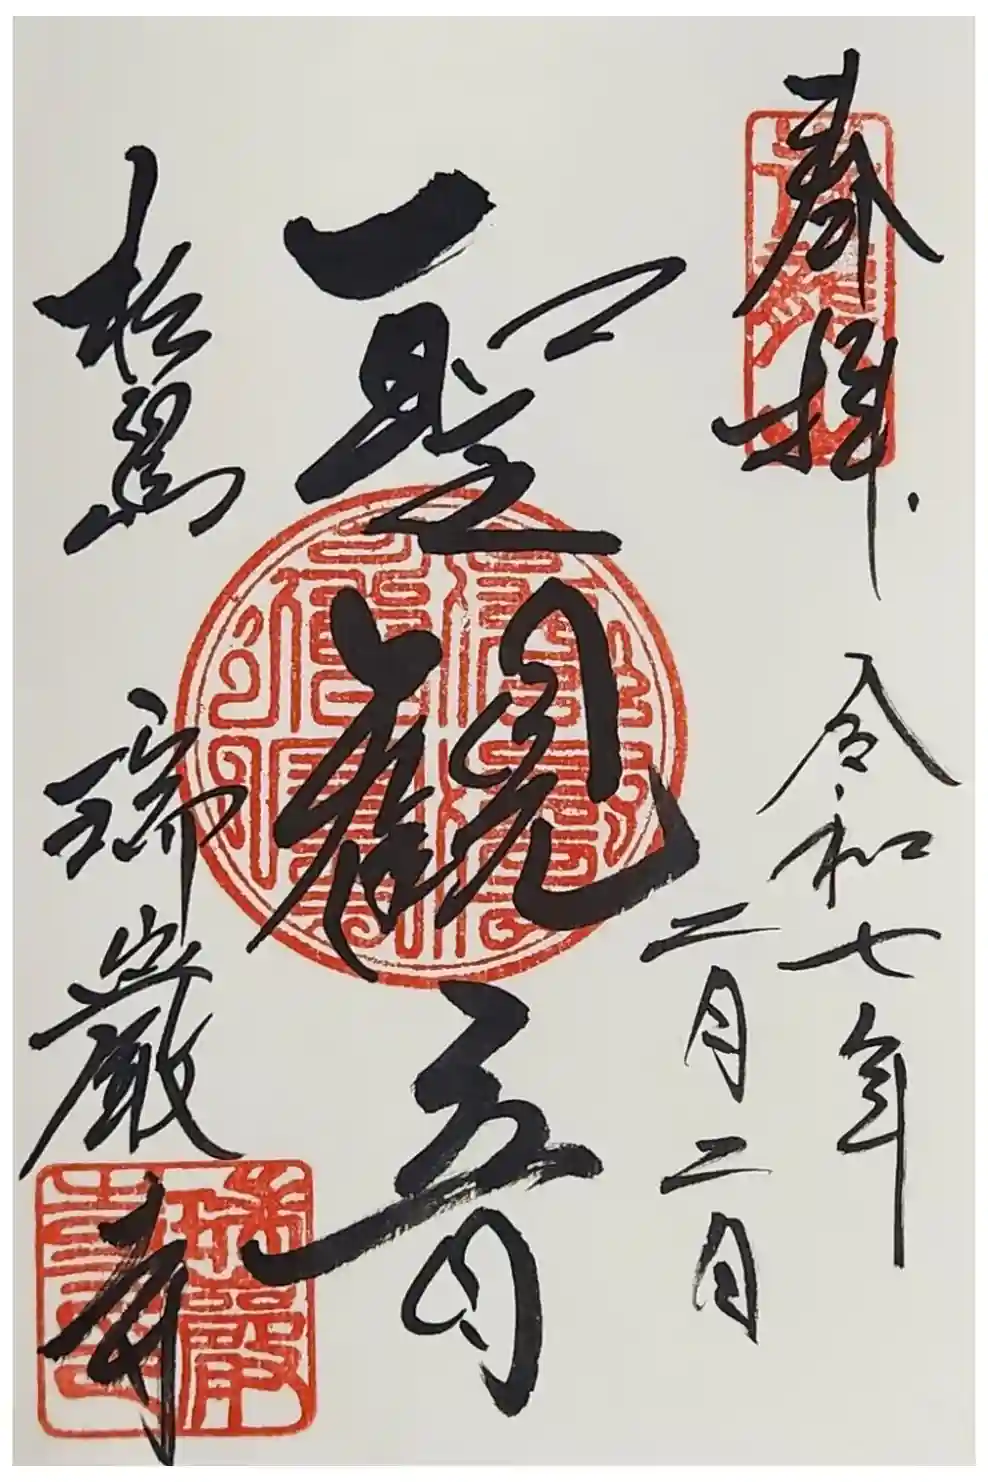 奉拝
令和七年
二月二日
聖観音
松島
瑞巌寺